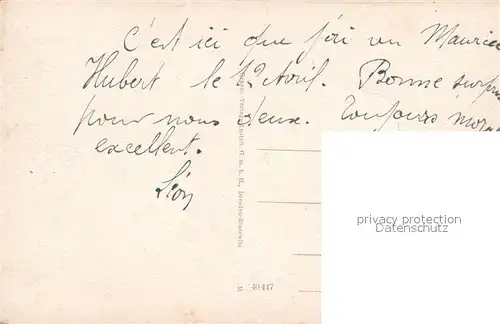 C'est ici que j'ai vu Maurice
Hubert le 12 Avril. Bonne surprise
pour nous deux. Toujours moral
excellent.
Léon
G. m. b. H., Dresden-Blasewitz
M 40447
privacy protection
Datenschutz